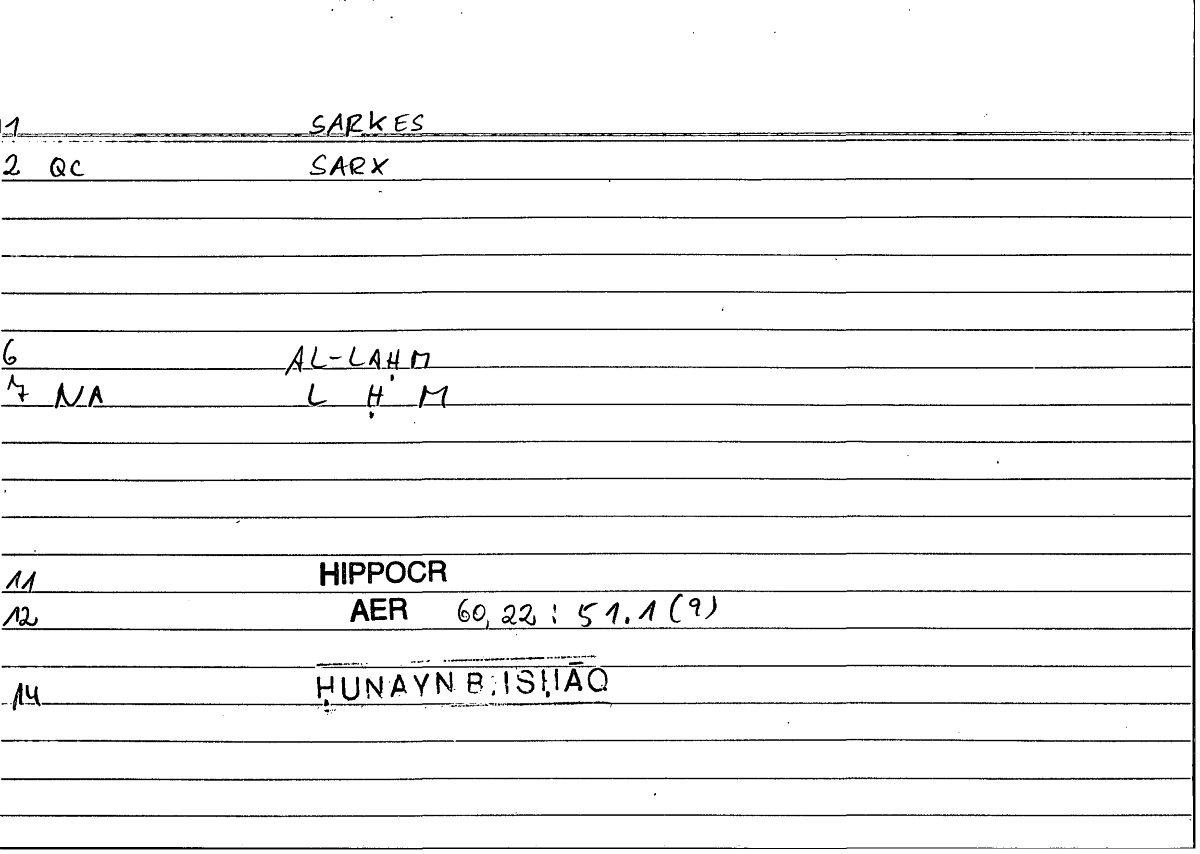 1 SARKES
2 QC SARX
6 AL-LAḤM
7 NA L Ḥ M
11 HIPPOCR
12 AER 60,22 : 51.1 (9)
14 ḤUNAYN B. ISḤĀQ